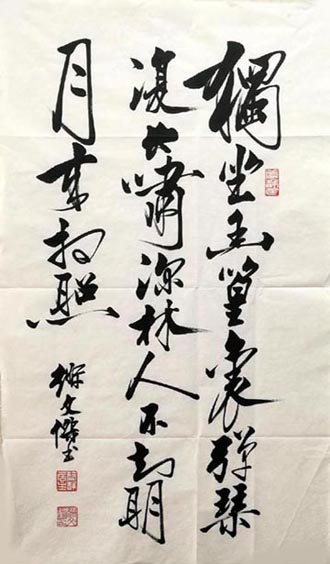 獨坐幽篁裏彈琴
復長嘯深林人不知明
月來相照